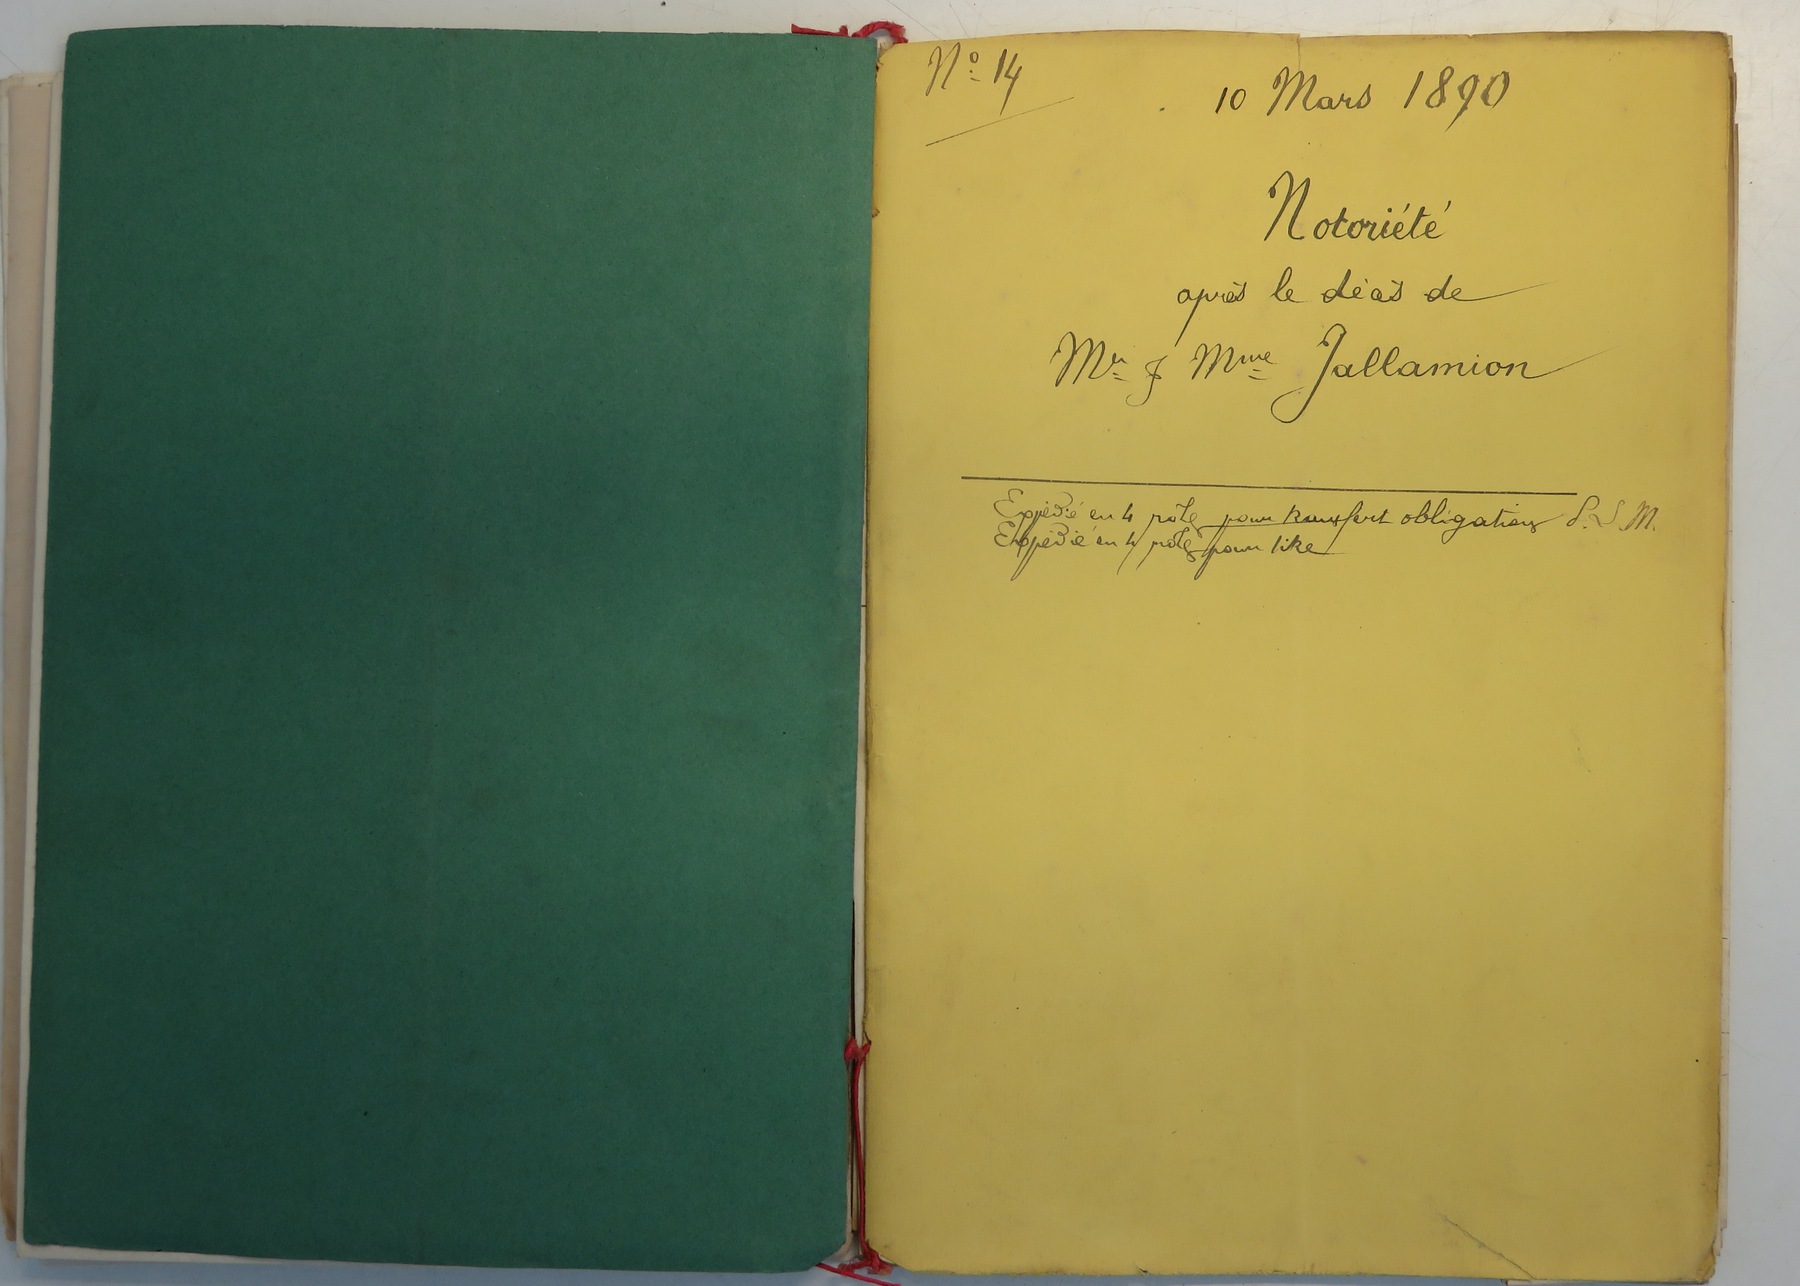 N° 14
10 Mars 1890
Notoriété
après le décès de
Mr & Mme Jallamion
Expédié en 4 rôles pour transfert obligations P. L. M.
Expédié en 4 rôles pour